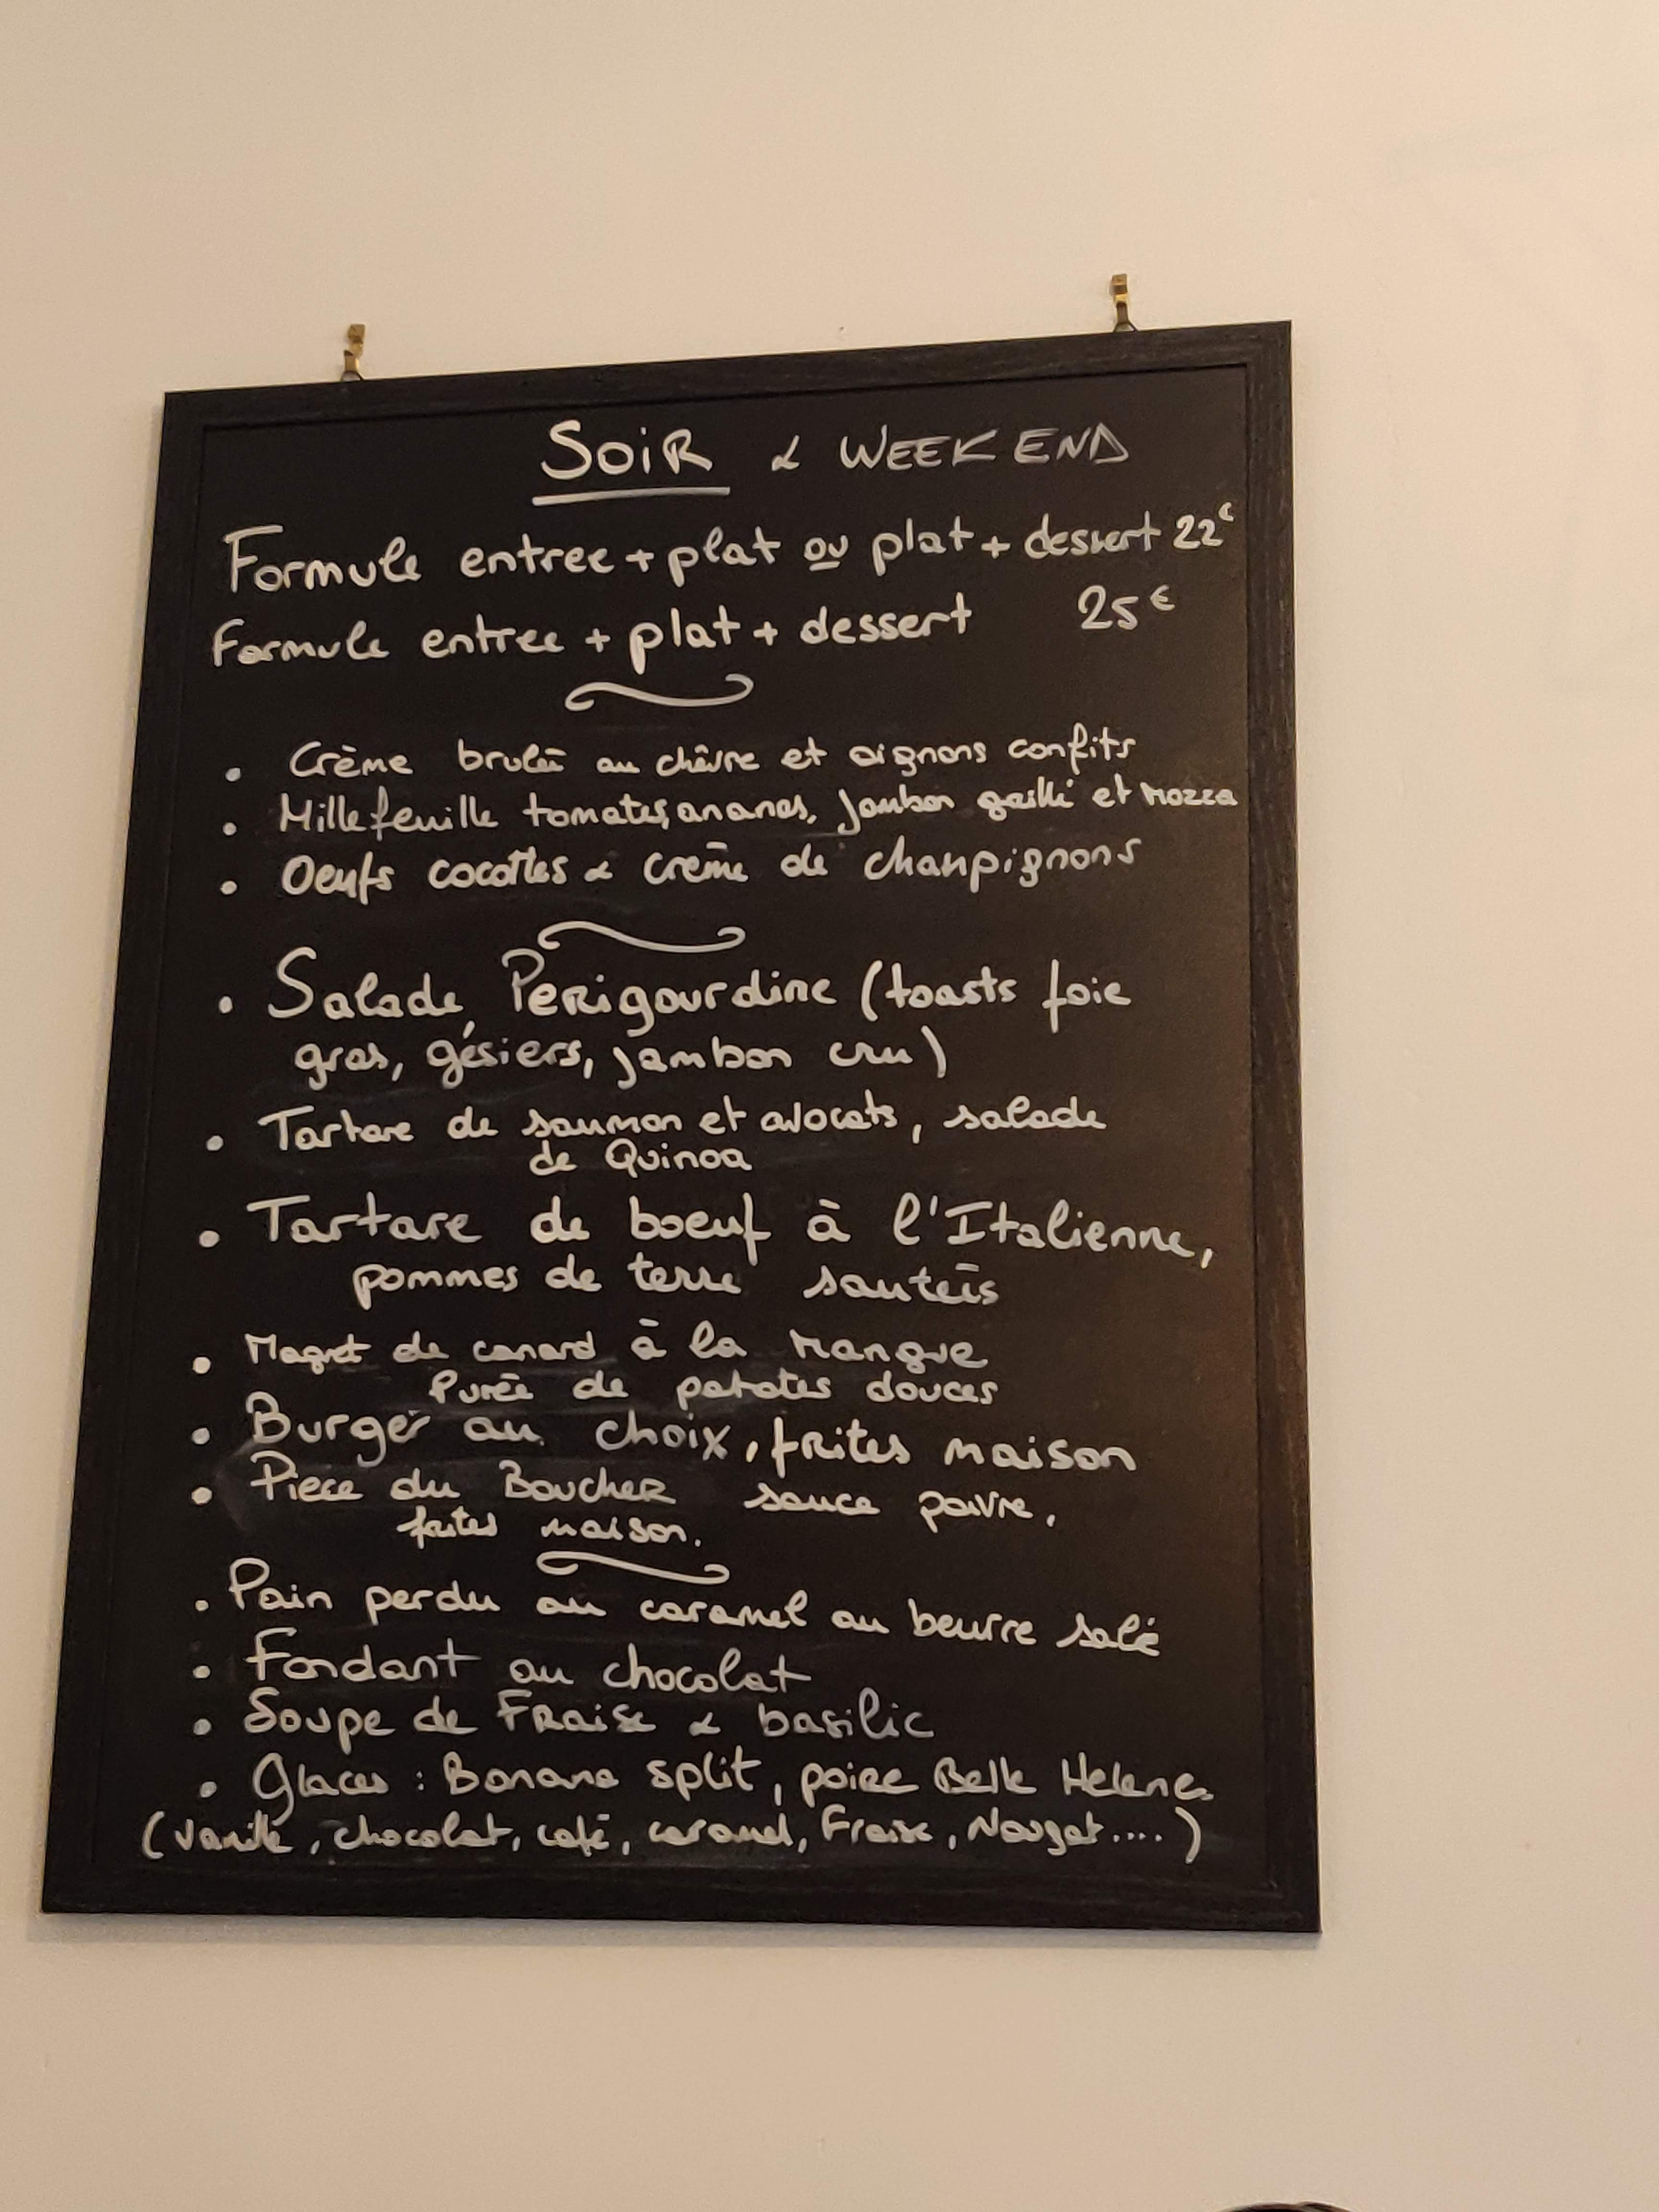 SOiR & WEEK END
Formule entree + plat ou plat + dessert 22€
Formule entree + plat + dessert 25€
• Crème brulée au chèvre et oignons confits
• Millefeuille tomates, ananas, Jambon grillé et Mozza
• Oeufs cocottes & crème de chanpignons
• Salade Perigourdine (toasts foie
gras, gésiers, jambon cru)
• Tartare de saumon et avocats, salade
de Quinoa
• Tartare de boeuf à l'Italienne,
pommes de terre sautées
• Magret de canard à la Mangue
Purée de patates douces
• Burger au choix, frites maison
• Piece du Boucher sauce poivre,
frites maison.
• Pain perdu au caramel au beurre salé
• Fondant au chocolat
• Soupe de Fraise & basilic
• Glaces : Banana split, poire Belle Helene
(Vanille, chocolat, café, caramel, Fraise, Nougat....)